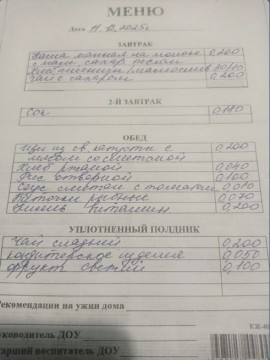 МЕНЮ
Дата 11. 12. 2025г
ЗАВТРАК
Каша манная на молоке 0,200
с масл. сахар песком
Чай с сахаром 0,200
2-Й ЗАВТРАК
Сок 0,180
ОБЕД
Щи из св капусты с 0,200
мясом со сметаной
Хлеб ржаной 0,040
Рис отварной 0,100
Соус сметан с томатом 0,010
Биточки рыбные 0,070
Кисель витамин 0,200
УПЛОТНЕННЫЙ ПОЛДНИК
Чай сладкий 0,200
Кондитерское изделие 0,050
Фрукт свежий 0,100
Рекомендации на ужин дома
Руководитель ДОУ
Старший воспитатель ДОУ